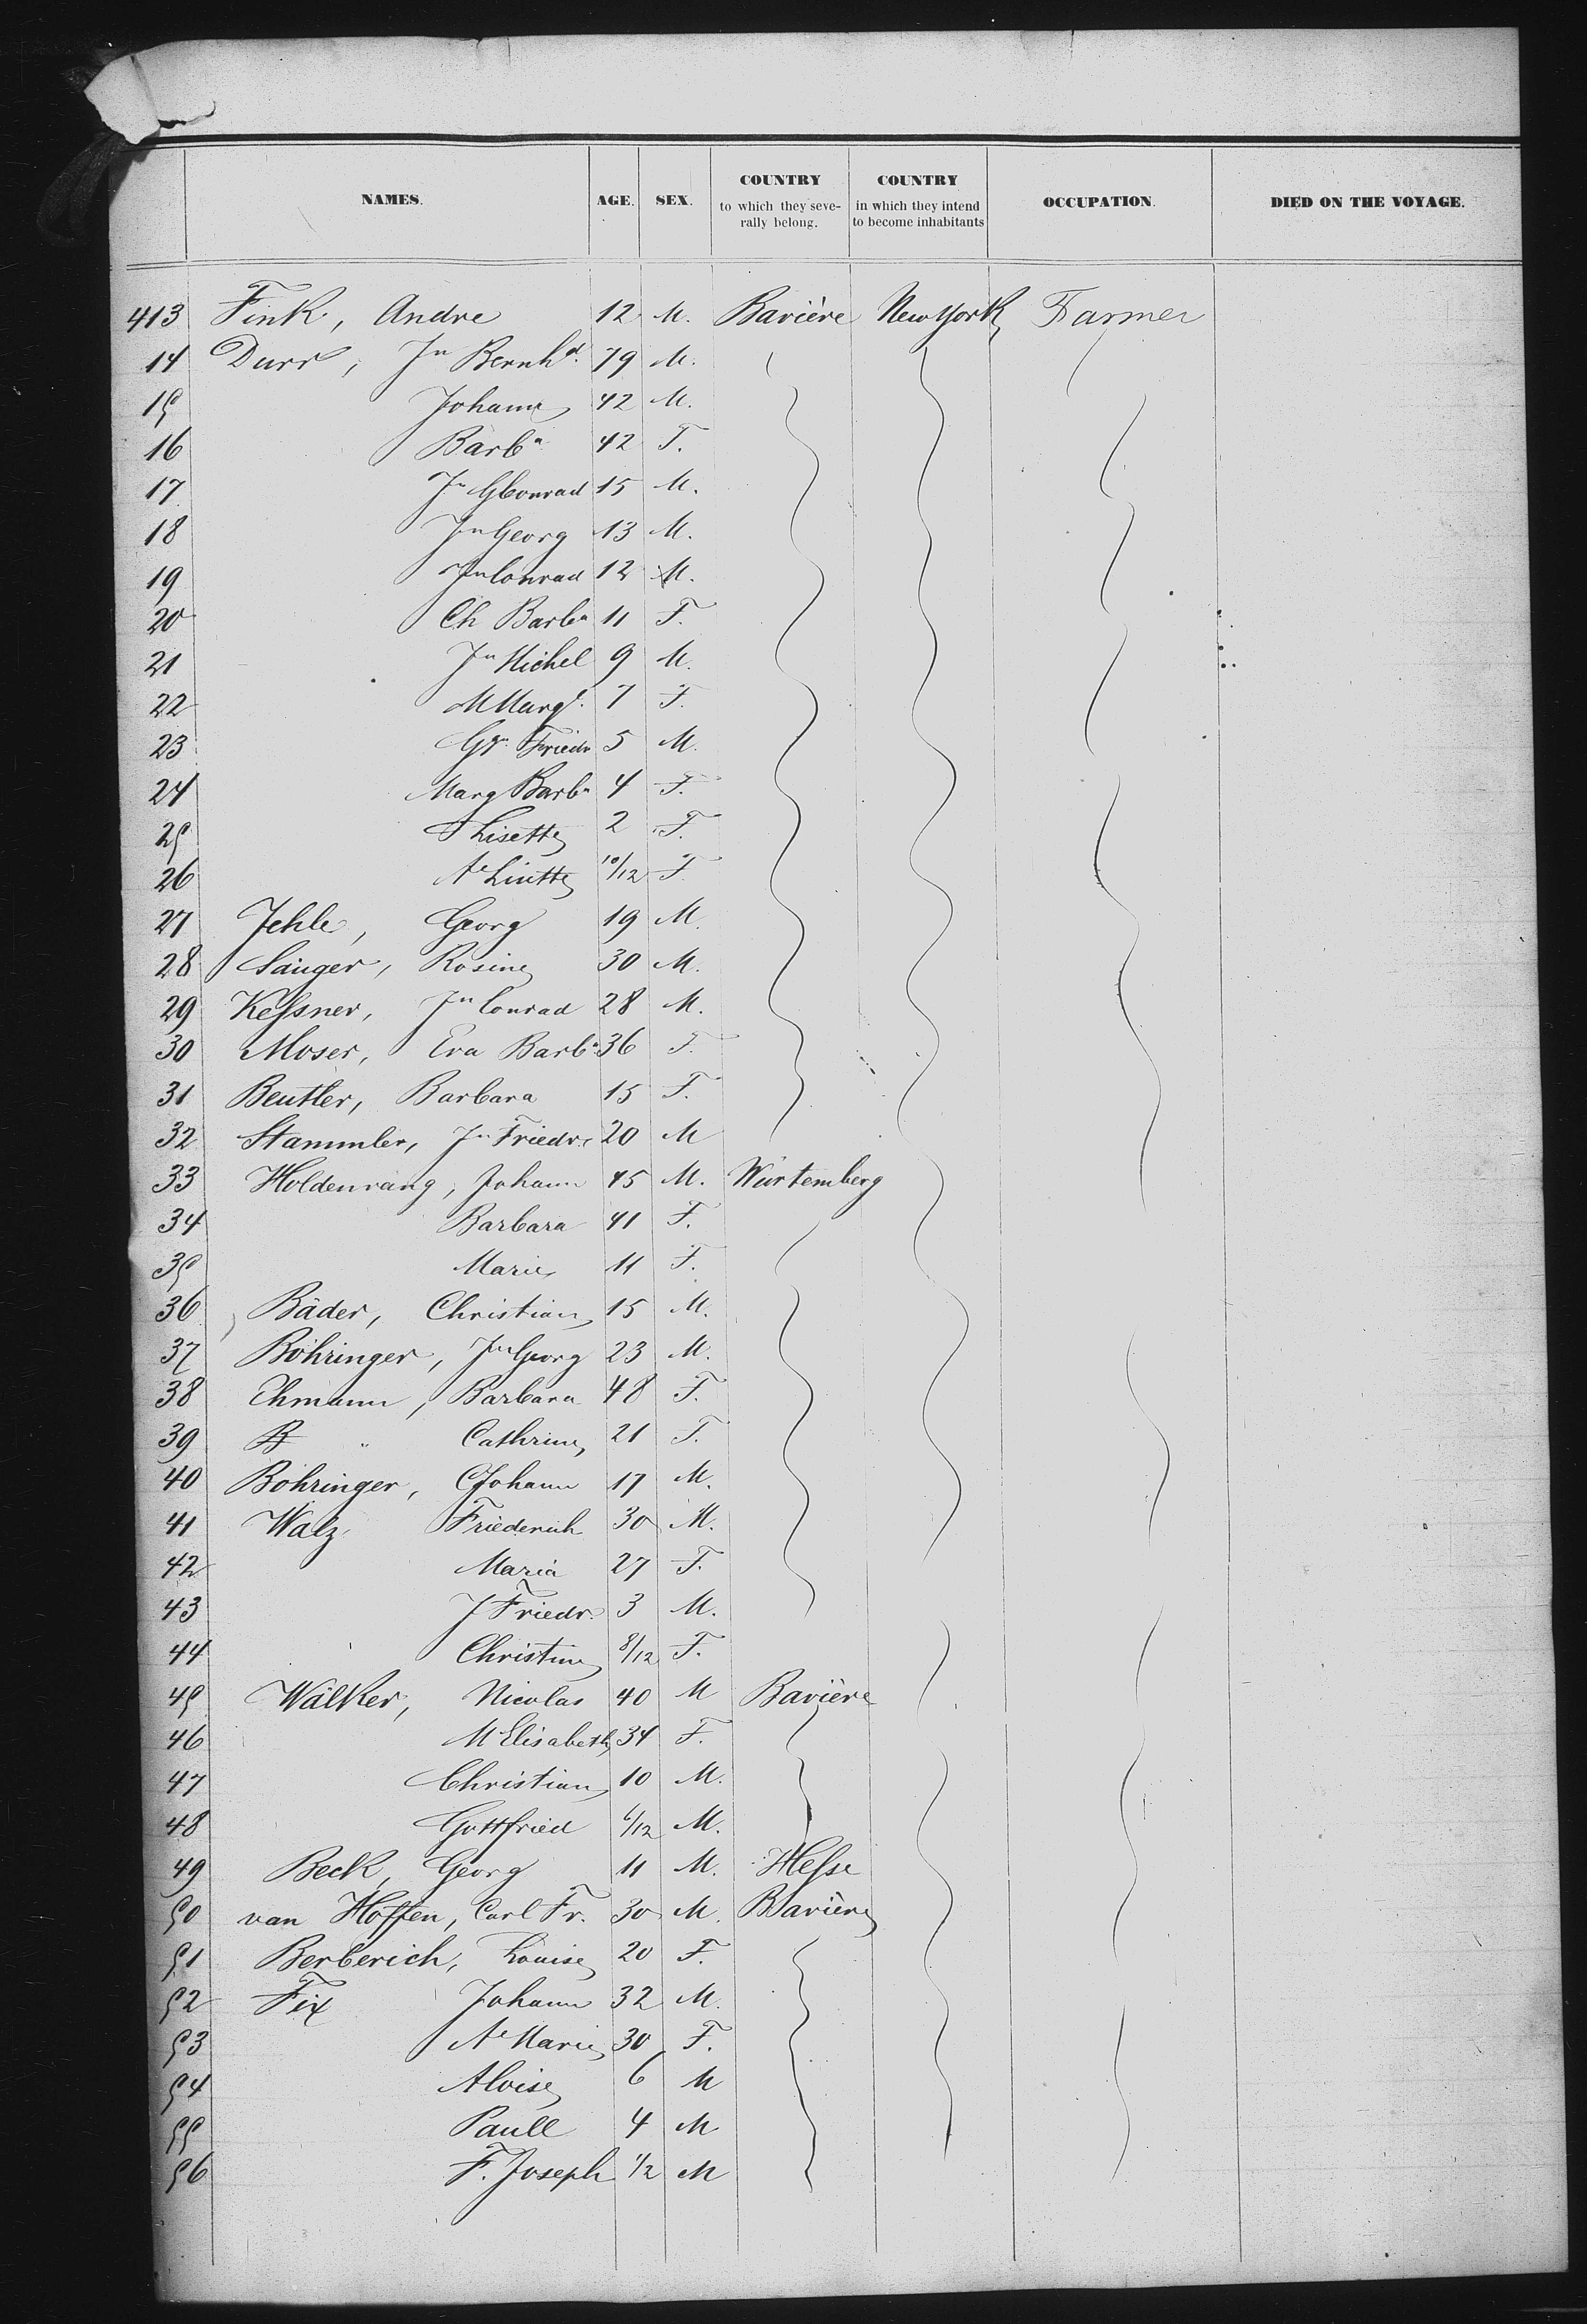 NAMES. AGE. SEX. COUNTRY to which they seve- rally belong. COUNTRY in which they intend to become inhabitants OCCUPATION. DIED ON THE VOYAGE.
413 Fink, Andre 12 M. Bavière New York Farmer
14 Durr, Jn Bernhd. 79 M.
15 Johann 42 M.
16 Barba 42 F.
17 Jn GConrad 15 M.
18 Jn Georg 13 M.
19 Jn Conrad 12 M.
20 Ch Barba 11 F.
21 Jn Michel 9 M.
22 M Margt. 7 F.
23 Gg. Friedr 5 M.
24 Marg Barba 4 F.
25 Lisette 2 F.
26 Ae 10/12 F.
27 Jehle, Georg 19 M.
28 Sänger, Rosine 30 M.
29 Keſsner, Jn Conrad 28 M.
30 Moser, Eva Barba 36 F.
31 Beutler, Barbara 15 F.
32 Stammler, Jn Friedr. 20 M
33 Holdenrang, Johann 45 M. Würtemberg
34 Barbara 41 F.
35 Marie 11 F.
36 Bäder, Christian 15 M.
37 Böhringer, Jn Georg 23 M.
38 Ehmann, Barbara 48 F.
39 B " Cathrine 21 F.
40 Böhringer, CJohann 17 M.
41 Walz Friederich 30 M.
42 Maria 27 F.
43 J Friedr. 3 M.
44 Christine 8/12 F.
45 Wälker, Nicolas 40 M Bavière
46 M Elisabeth 34 F.
47 Christian 10 M.
48 Gottfried 6/12 M.
49 Beck, Georg 11 M. Heſse
50 van Hoffen, Carl Fr. 30 M. Bavière
51 Berberich, Louise 20 F.
52 Fix Johann 32 M.
53 Ae Marie 30 F.
54 Aloise 6 M
55 Paull 4 M
56 F. Joseph 1/2 M